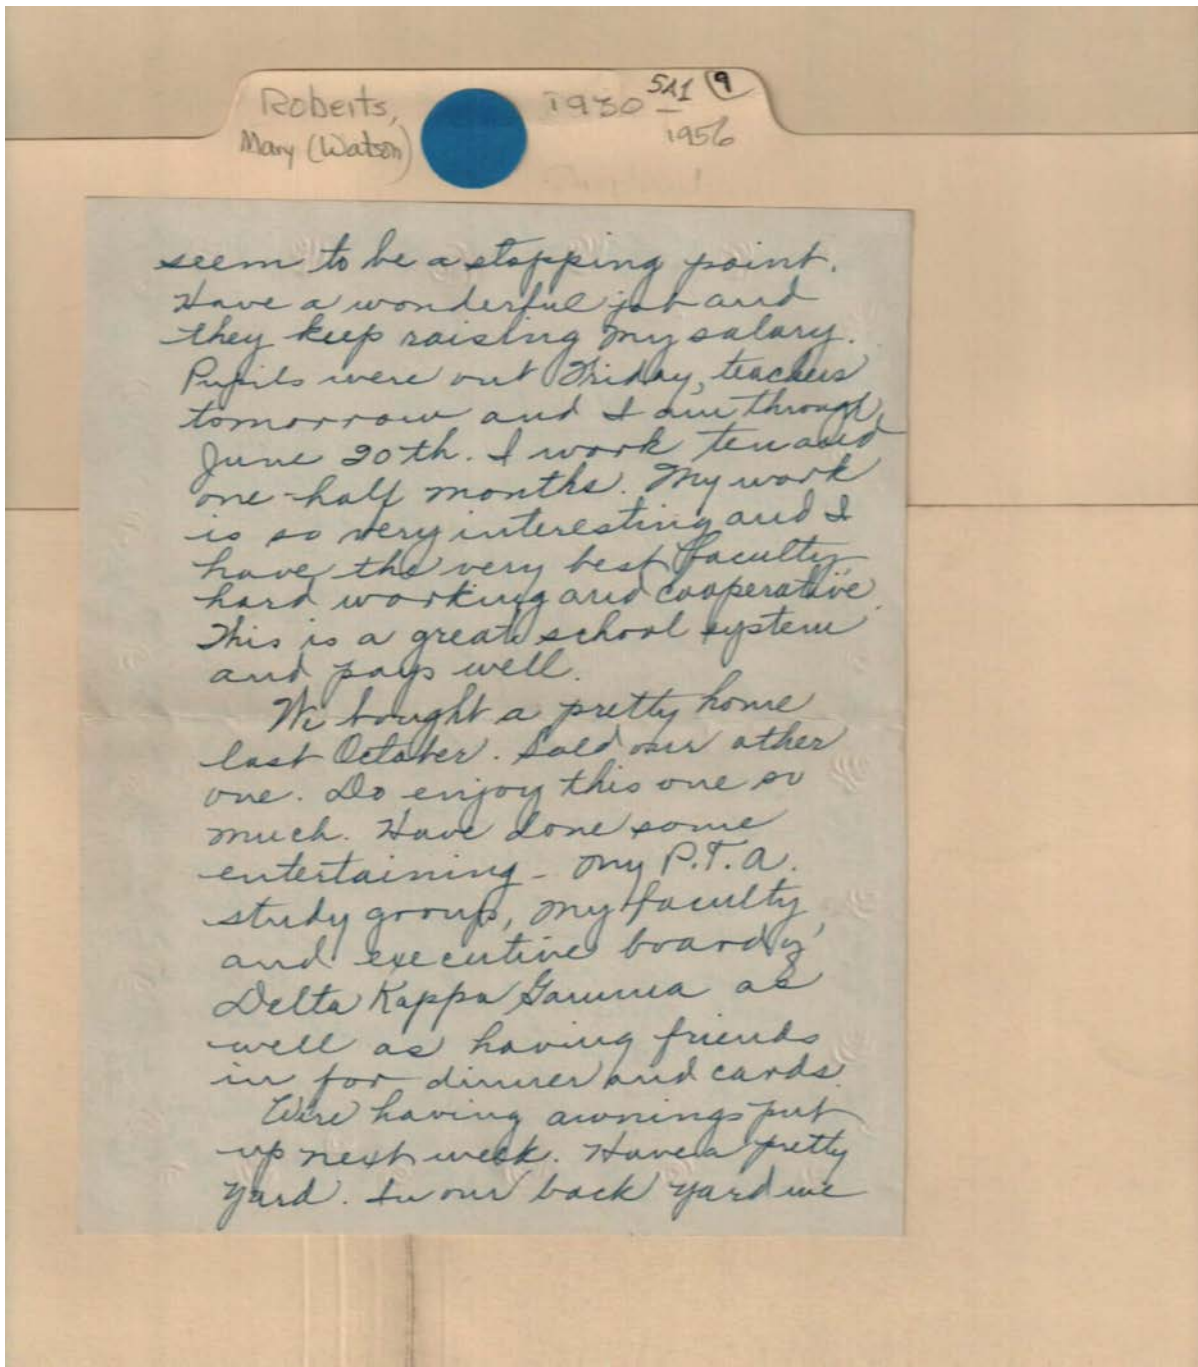 Roberts,
Mary (Watson)
1930 –
1956
SA1 9
seem to be a stopping point.
Have a wonderful job and
they keep raising my salary.
Pupils were out Friday, teachers
tomorrow and I am through
June 20th. I work ten and
one-half months. My work
is so very interesting and I
have the very best faculty
hard working and cooperative.
This is a great school system
and pays well.
We bought a pretty home
last October. Sold our other
one. Do enjoy this one so
much. Have done some
entertaining - my P.T.A.
study group, my faculty,
and executive board of
Delta Kappa Gamma as
well as having friends
in for dinner and cards.
We're having awnings put
up next week. Have a pretty
yard. In our back yard we